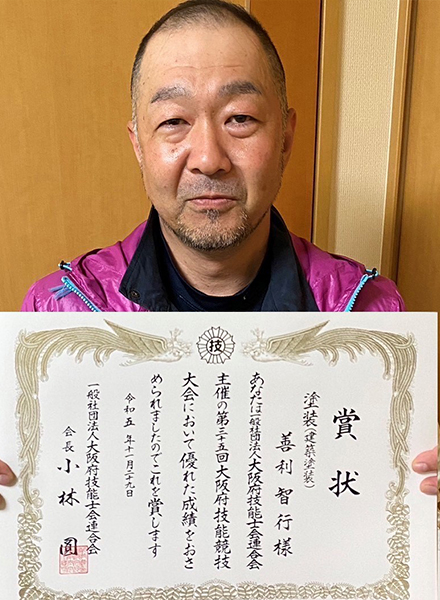 技
賞状
塗装(建築塗装)
善利智行様
あなたは一般社団法人大阪府技能士会連合会
主催の第三十五回大阪府技能競技
大会において優れた成績をおさ
められましたのでこれを賞します
令和五年十一月二十九日
一般社団法人大阪府技能士会連合会
会長 小林 圓